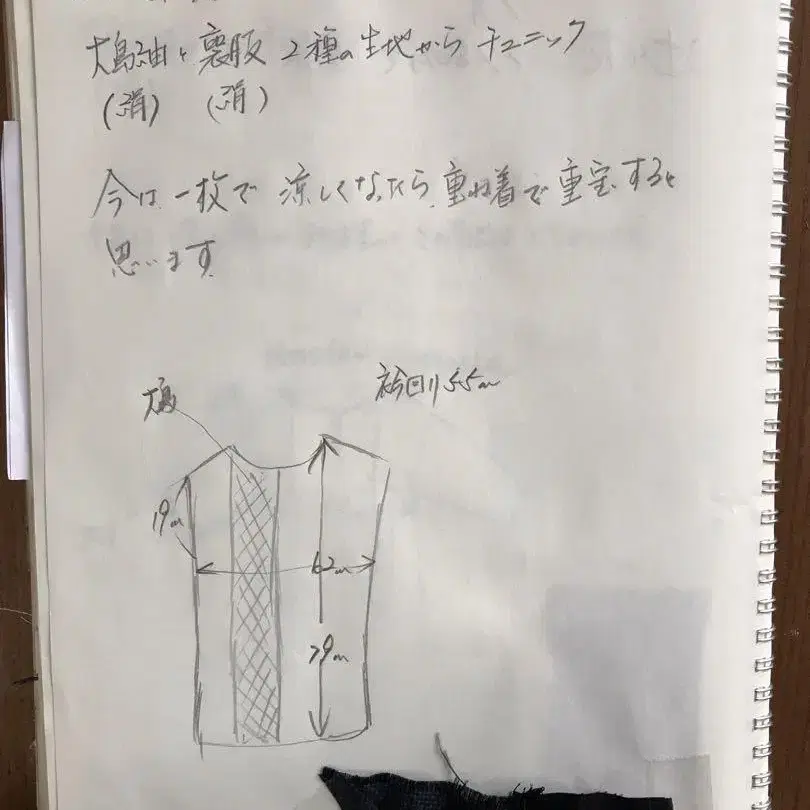 大島紬と裏地 2種の生地から チュニック
(絹) (絹)
今は 一枚で 涼しくなったら 重ね着で 重宝すると
思います
大島
衿回り55cm
19cm
62cm
79cm